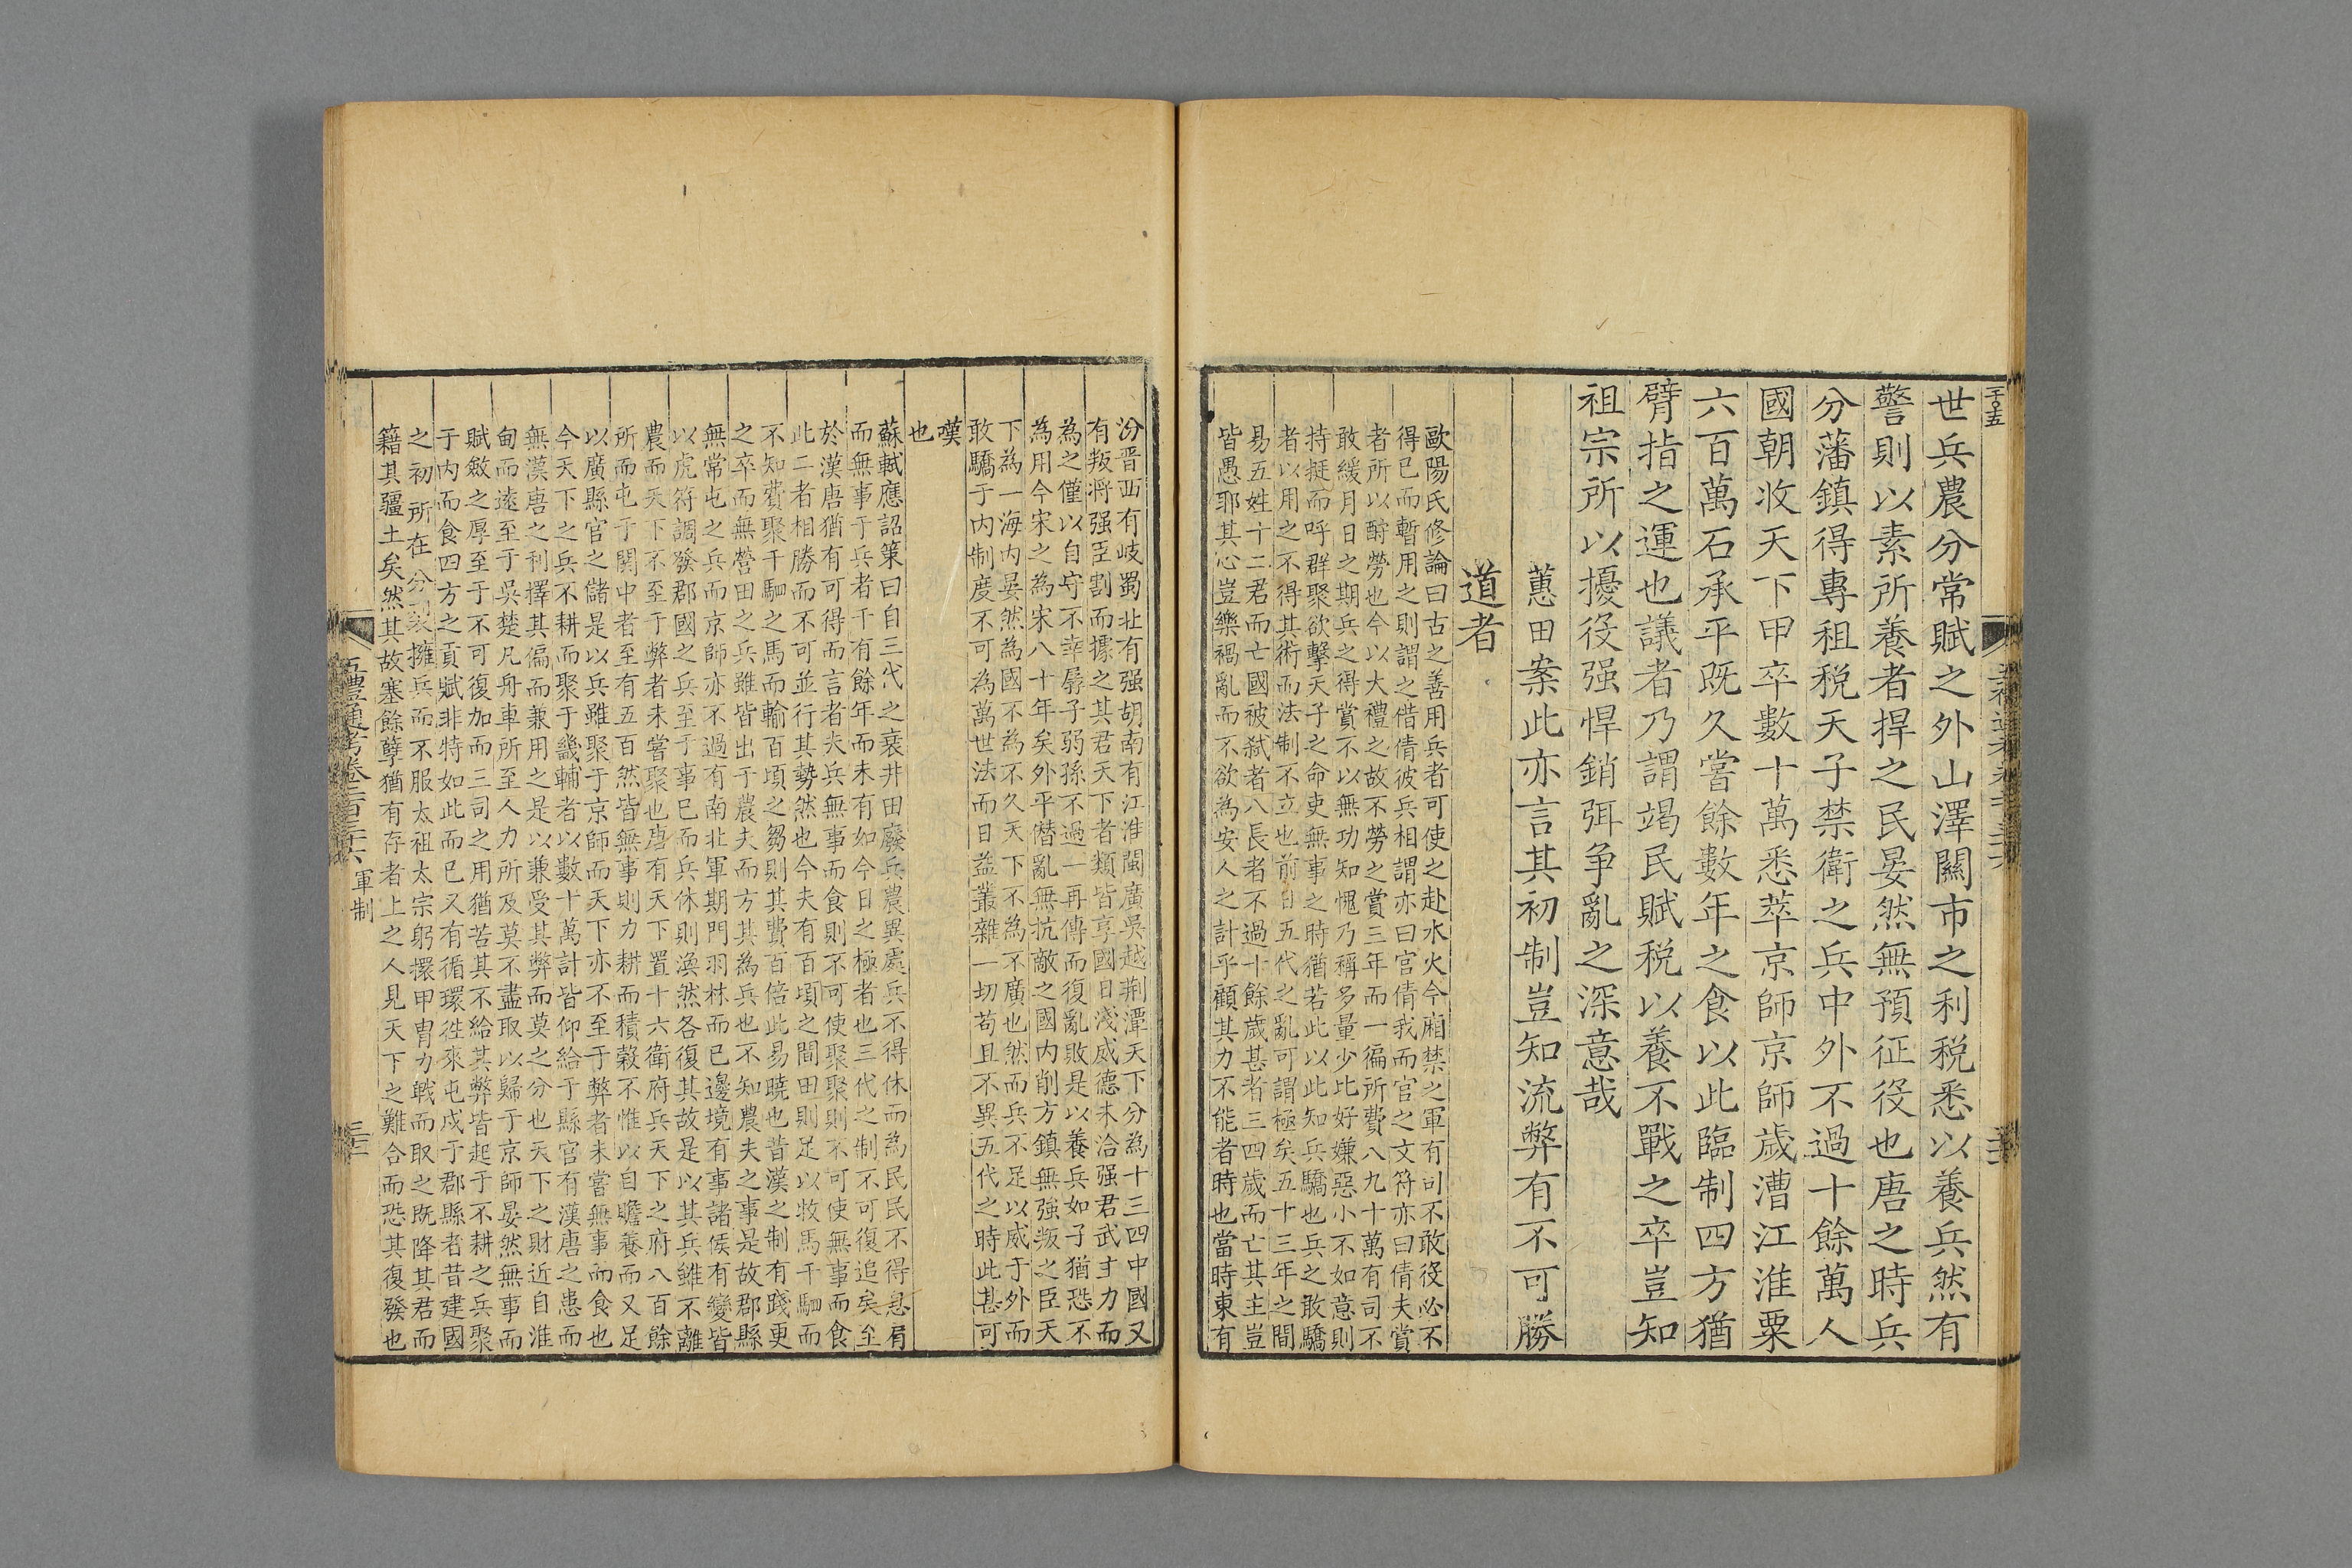 世兵農分常賦之外山澤關市之利稅悉以養兵然有
警則以素所養者捍之民晏然無預征役也唐之時兵
分藩鎮得專租税天子禁衛之兵中外不過十餘萬人
國朝收天下甲卒數十萬悉萃京師京師歲漕江淮粟
六百萬石承平既久嘗餘數年之食以此臨制四方猶
臂指之運也議者乃謂竭民賦税以養不戰之卒豈知
祖宗所以擾役强悍銷弭争亂之深意哉
蕙田案此亦言其初制豈知流弊有不可勝
道者
歐陽氏修論曰古之善用兵者可使之赴水火今廂禁之軍有司不敢役必不
得已而暫用之則謂之借倩彼兵相謂亦曰官倩我而官之文符亦曰倩夫賞
者所以酧勞也今以大禮之故不勞之賞三年而一徧所費八九十萬有司不
敢緩月日之期兵之得賞不以無功知愧乃稱多量少比好嫌惡小不如意則
持挺而呼群聚欲擊天子之命吏無事之時猶若此以此知兵驕也兵之敢驕
者以用之不得其術而法制不立也前日五代之亂可謂極矣五十三年之間
易五姓十二君而亡國被弑者八長者不過十餘歲甚者三四歲而亡其主豈
皆愚耶其心豈樂禍亂而不欲為安人之計乎顧其力不能者時也當時東有
汾晋西有岐蜀北有强胡南有江淮閩廣吳越荆潭天下分為十三四中國又
有叛将强臣割而據之其君天下者類皆享國日淺威德未洽强君武才力而
為之僅以自守不幸孱子弱孫不過一再傳而復亂敗是以養兵如子猶恐不
為用今宋之為宋八十年矣外平僭亂無抗敵之國内削方鎮無強叛之臣天
下為一海内晏然為國不為不久天下不為不廣也然而兵不足以威于外而
敢驕于内制度不可為萬世法而日益叢雜一切苟且不異五代之時此甚可
嘆
也
蘇軾應詔策曰自三代之衰井田廢兵農異處兵不得休而為民民不得息肩
而無事于兵者千有餘年而未有如今日之極者也三代之制不可復追矣至
於漢唐猶有可得而言者夫兵無事而食則不可使聚聚則不可使無事而食
此二者相勝而不可並行其勢然也今夫有百頃之間田則足以牧馬千駟而
不知費聚千駟之馬而輸百頃之芻則其費百倍此易曉也昔漢之制有踐更
之卒而無營田之兵雖皆出于農夫而方其為兵也不知農夫之事是故郡縣
無常屯之兵而京師亦不過有南北軍期門羽林而已邊境有事諸侯有變皆
以虎符調發郡國之兵至于事已而兵休則渙然各復其故是以其兵雖不離
農而天下不至于弊者未嘗聚也唐有天下置十六衛府兵天下之府八百餘
所而屯于關中者至有五百然皆無事則力耕而積榖不惟以自瞻養而又足
以廣縣官之儲是以兵雖聚于京師而天下亦不至于弊者未嘗無事而食也
今天下之兵不耕而聚于畿輔者以數十萬計皆仰給于縣官有漢唐之患而
無漢唐之利擇其偏而兼用之是以兼受其弊而莫之分也天下之財近自淮
甸而遠至于吳楚凡舟車所至人力所及莫不盡取以歸于京師晏然無事而
賦斂之厚至于不可復加而三司之用猶苦其不給其弊皆起于不耕之兵聚
于内而食四方之貢賦非特如此而已又有循環徃來屯戍于郡縣者昔建國
之初所在分裂擁兵而不服太祖太宗躬擐甲胄力戰而取之既降其君而
籍其疆土矣然其故塞餘孽猶有存者上之人見天下之難合而恐其復發也
五禮通考卷二百三十六 軍制